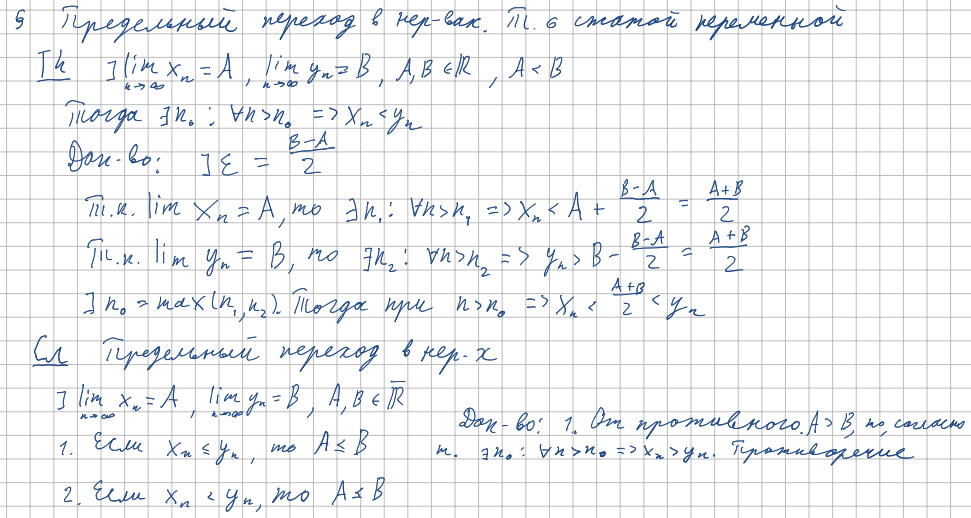 § Предельный переход в нер-вах. Т. о сжатой переменной
Th ] lim_{n→∞} x_n = A, lim_{n→∞} y_n = B, A,B ∈ ℝ, A < B
Тогда ∃n₀: ∀n>n₀ => x_n < y_n
Док-во: ] ε = (B-A)/2
Т.к. lim x_n = A, то ∃n₁: ∀n>n₁ => x_n < A + (B-A)/2 = (A+B)/2
Т.к. lim y_n = B, то ∃n₂: ∀n>n₂ => y_n > B - (B-A)/2 = (A+B)/2
] n₀ = max(n₁,n₂). Тогда при n>n₀ => x_n < (A+B)/2 < y_n
Сл Предельный переход в нер-х
] lim_{n→∞} x_n = A, lim_{n→∞} y_n = B, A,B ∈ ℝ̅
1. Если x_n ≤ y_n, то A ≤ B
2. Если x_n < y_n, то A ≤ B
Док-во: 1. От противного. A > B, но, согласно
т. ∃n₀: ∀n>n₀ => x_n > y_n. Противоречие